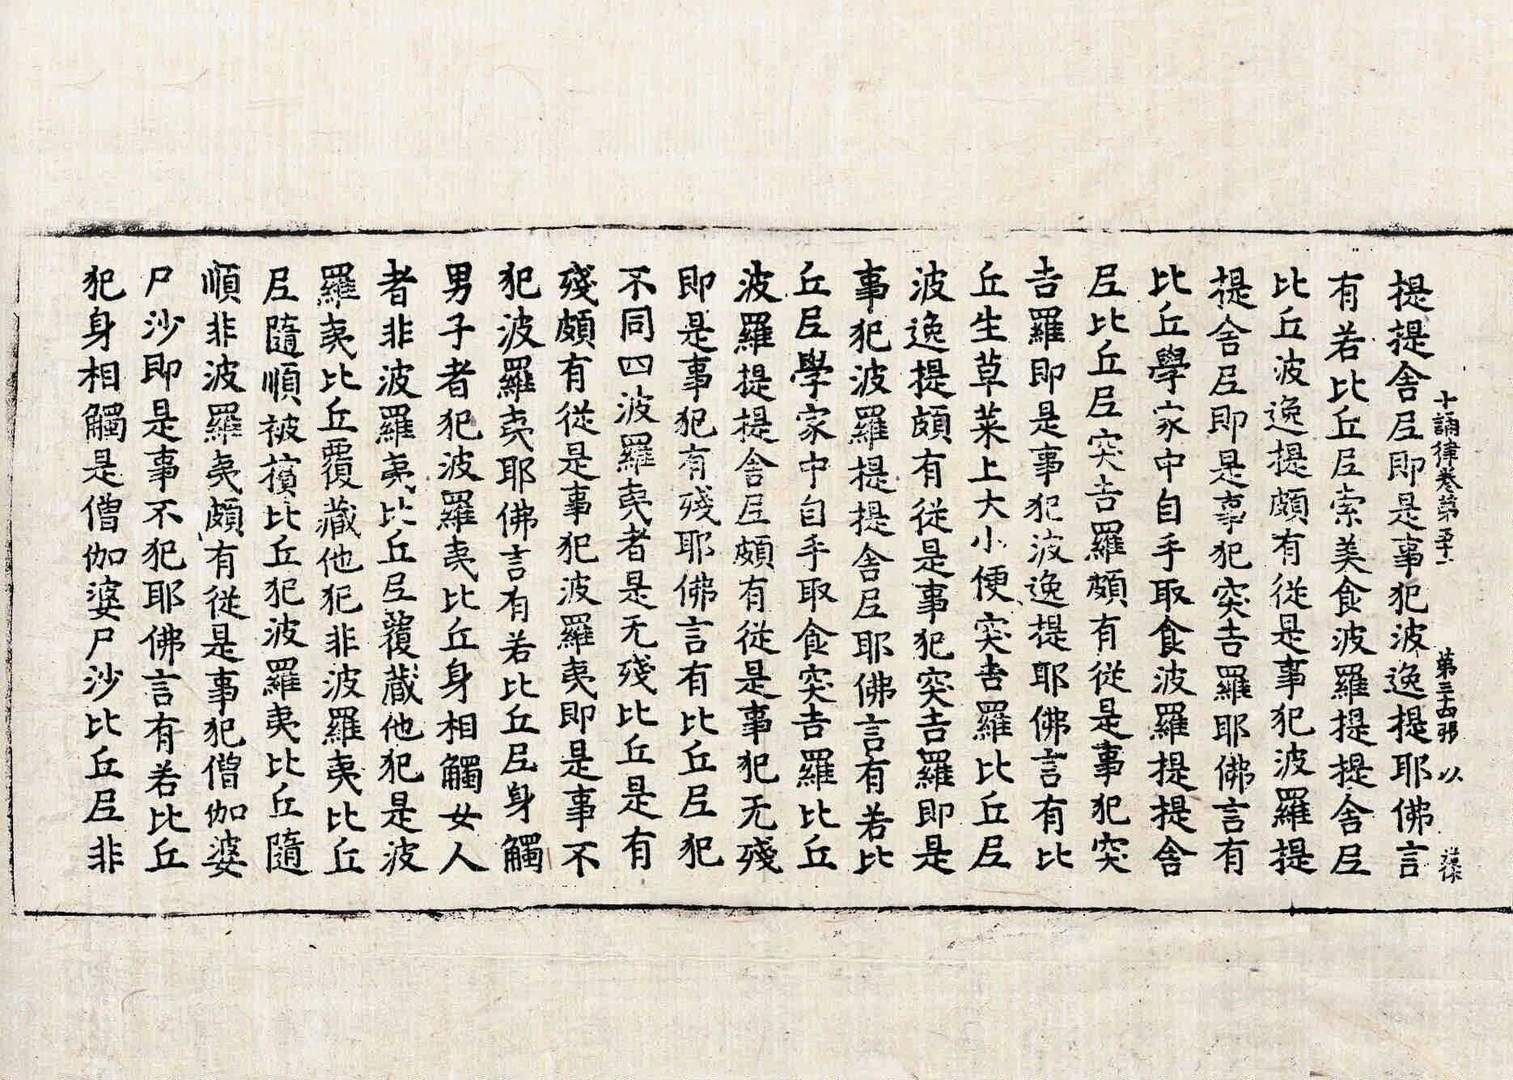 十誦律卷第五十一 第三十四張 以
提提舍尼即是事犯波逸提耶佛言
有若比丘尼索美食波羅提提舍尼
比丘波逸提頗有從是事犯波羅提
提舍尼即是事犯突吉羅耶佛言有
比丘學家中自手取食波羅提提舍
尼比丘尼突吉羅頗有從是事犯突
吉羅即是事犯波逸提耶佛言有比
丘生草菜上大小便突吉羅比丘尼
波逸提頗有從是事犯突吉羅即是
事犯波羅提提舍尼耶佛言有若比
丘尼學家中自手取食突吉羅比丘
波羅提提舍尼頗有從是事犯无殘
即是事犯有殘耶佛言有比丘尼犯
不同四波羅夷者是无殘比丘是有
殘頗有從是事犯波羅夷即是事不
犯波羅夷耶佛言有若比丘尼身觸
男子者犯波羅夷比丘身相觸女人
者非波羅夷比丘尼覆藏他犯是波
羅夷比丘覆藏他犯非波羅夷比丘
尼隨順被擯比丘犯波羅夷比丘隨
順非波羅夷頗有從是事犯僧伽婆
尸沙即是事不犯耶佛言有若比丘
犯身相觸是僧伽婆尸沙比丘尼非